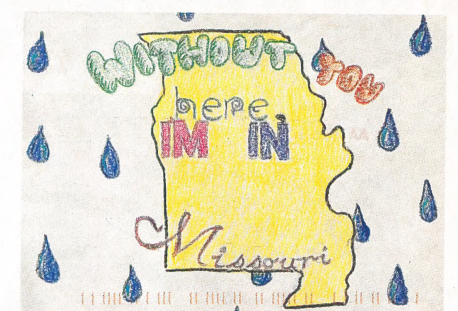 WITHOUT YOU
here,
IM IN
Missouri